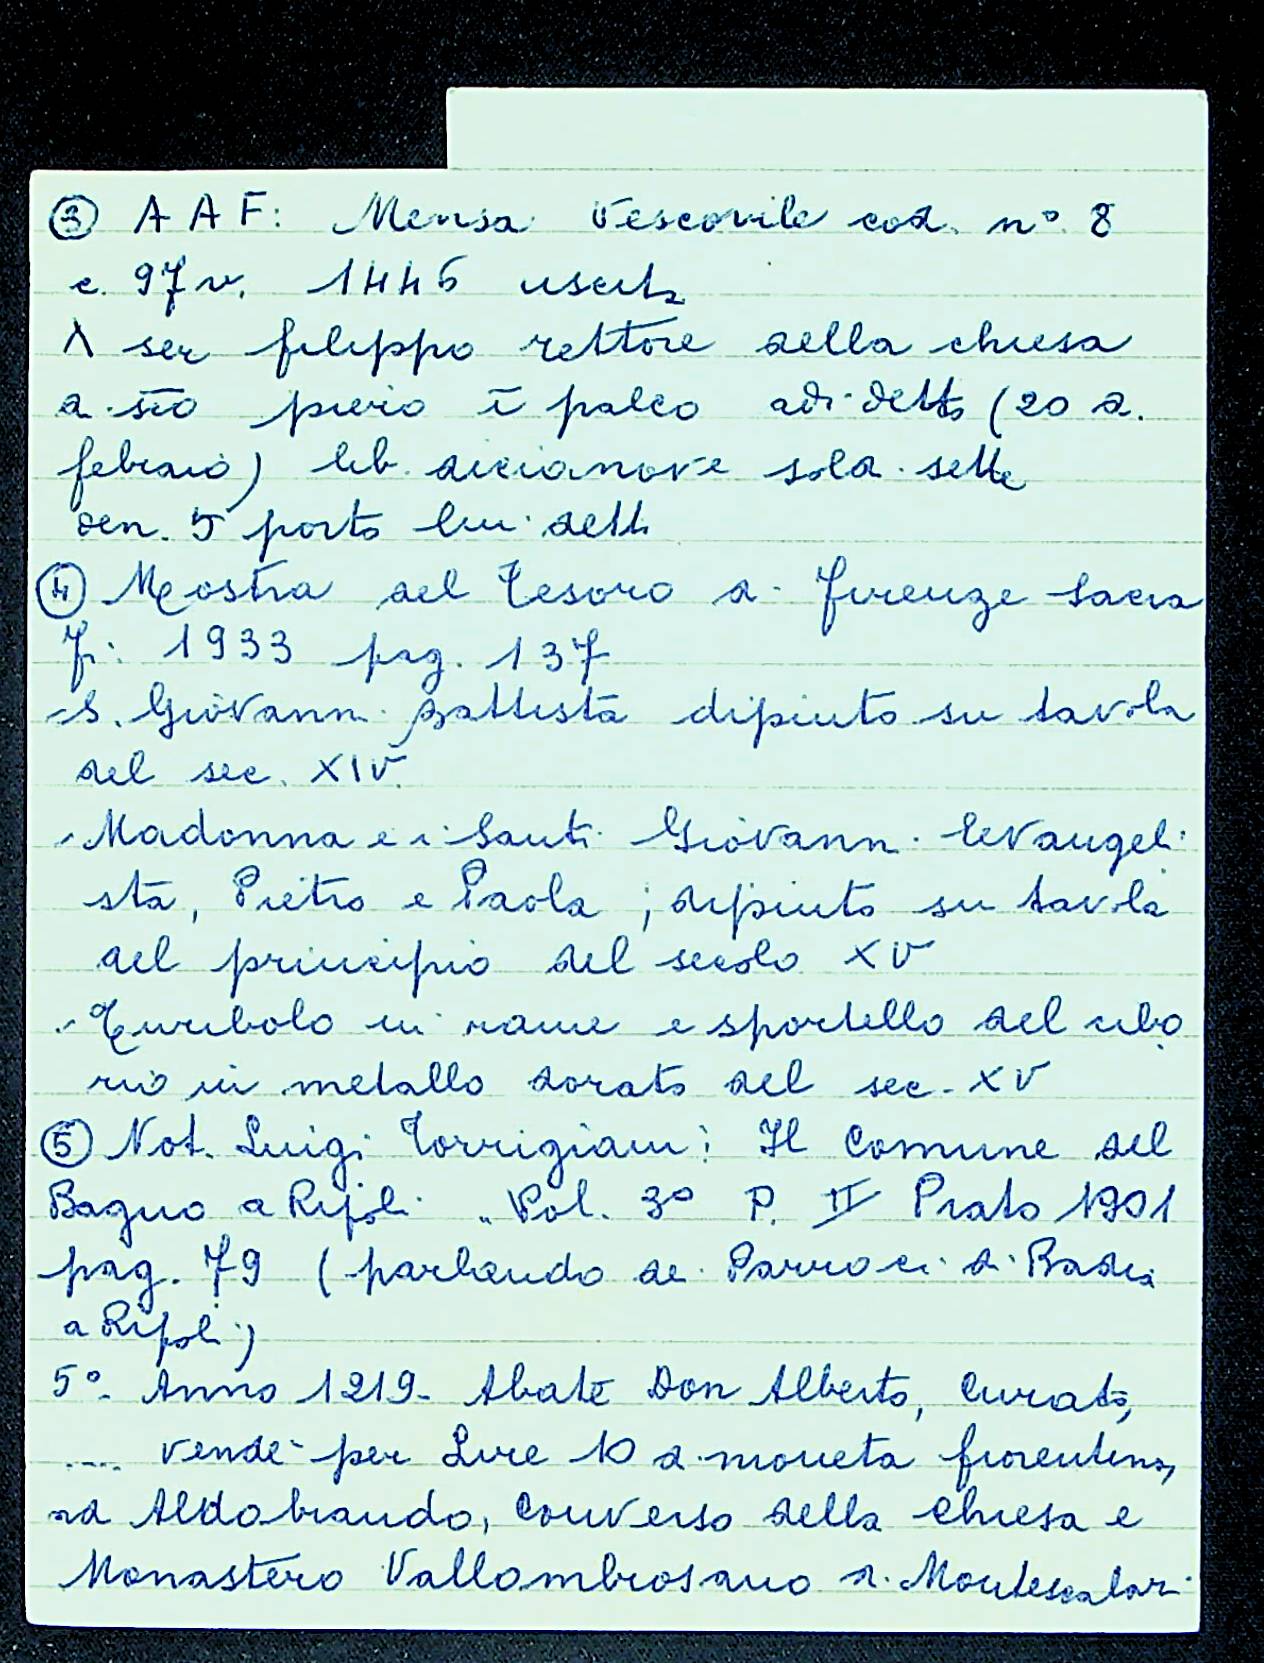 ③ A A F: Mensa Vescovile cod. n° 8
c. 97 v. 1446 uscita
A ser filippo rettore della chiesa
di sto piero ī palco adi detto (20 di
febraio) lib. dicianove sold. sette
den. 5 porto lui detto
④ Mostra del Tesoro di Firenze Sacra
Fi: 1933 pag. 137
- S. Giovanni Battista dipinto su tavola
del sec. XIV.
- Madonna e i Santi Giovanni Evangeli
sta, Pietro e Paola ; dipinto su tavola
del principio del secolo XV
- Turibolo in rame e sportello del cibo
rio in metallo dorato del sec. XV
⑤ Not. Luigi Torrigiani: Il Comune del
Bagno a Ripoli. Vol. 3° P. II Prato 1901
pag. 79 (parlando dei Parroci di Badia
a Ripoli)
5°- Anno 1219- Abate Don Alberto, Curato,
.... vende per Lire 10 di moneta fiorentina,
ad Aldobrando, Converso della Chiesa e
Monastero Vallombrosano di Montescalari